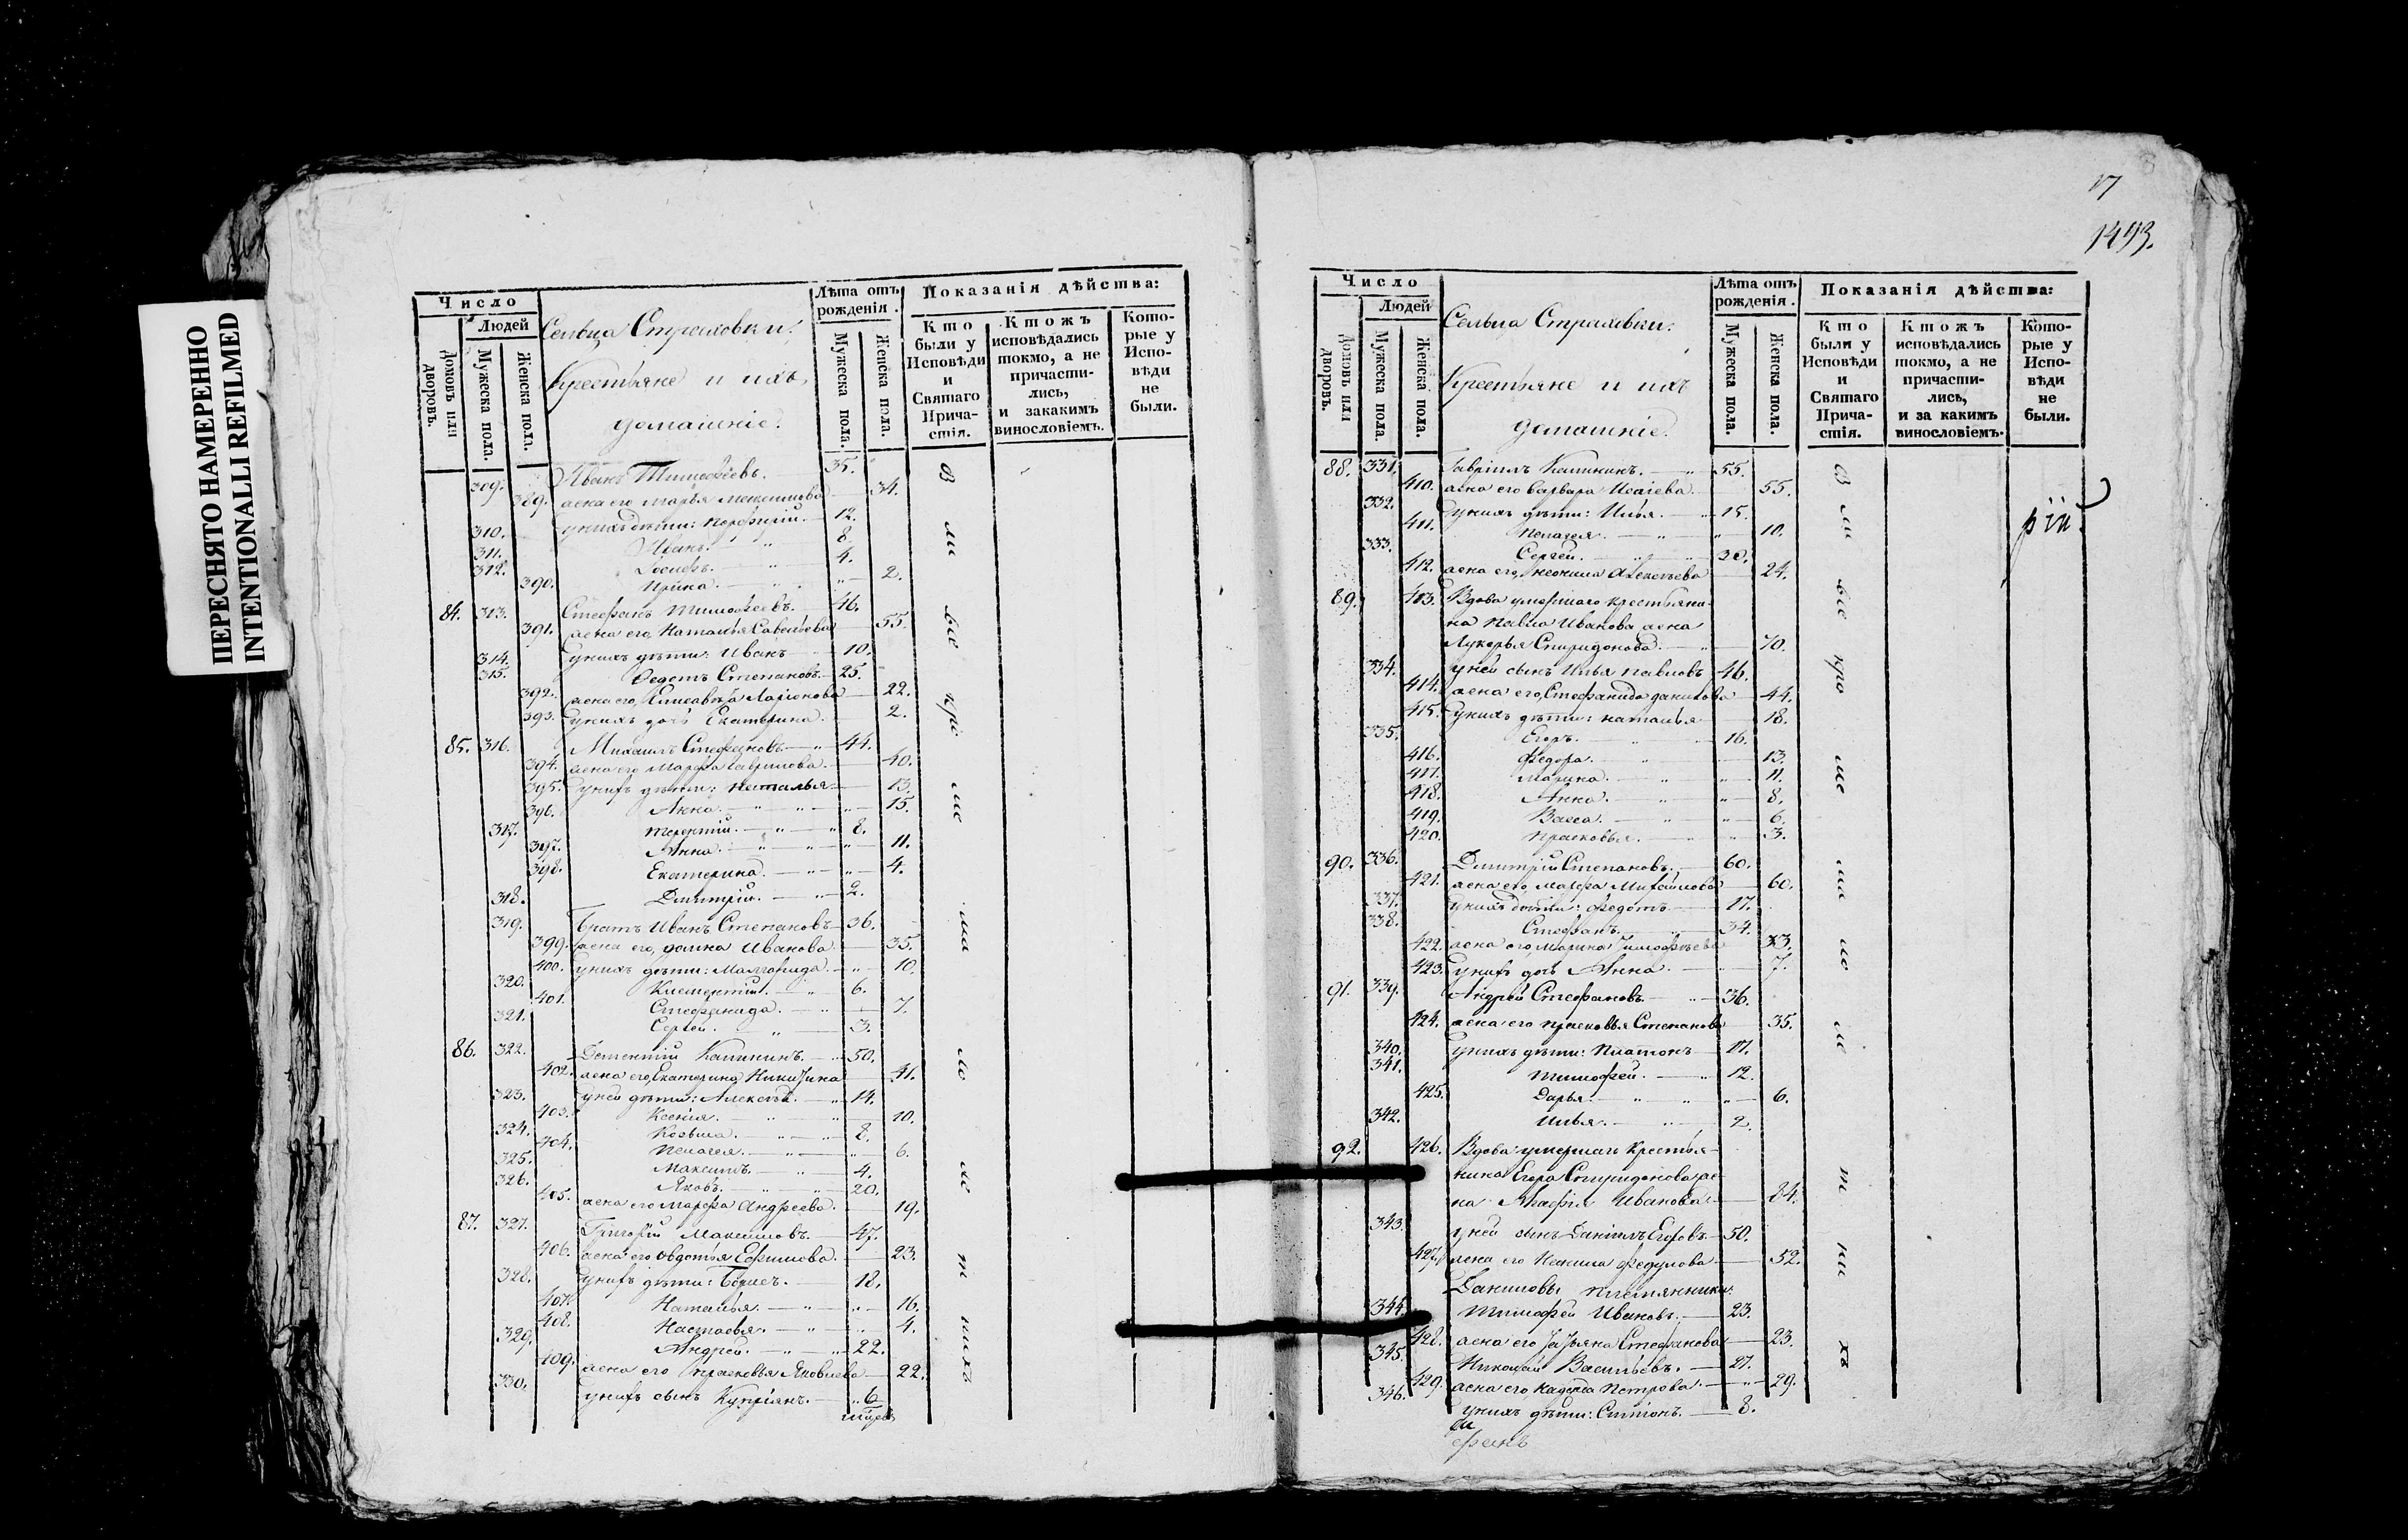 ПЕРЕСНЯТО НАМЕРЕННО
INTENTIONALLI REFILMED
Число
Людей
Домовъ или дворовъ.
Мужеска пола.
Женска пола.
Сельца Страховки.
Крестьяне и ихъ
домашніе.
Лѣта отъ рожденія.
Мужеска пола.
Женска пола.
Показанія дѣйства:
Кто были у Исповѣди и Святаго Причастія.
Ктожъ исповѣдались токмо, а не причастились, и закакимъ винословіемъ.
Которые у Исповѣди не были.
309. Иванъ Тимофеевъ. 35.
389. жена его Марья Максимова 34.
310. у нихъ дѣти: Порфирій. 12.
311. Иванъ. 8.
312. Іосифъ. 4.
390. Ирина. 2.
84. 313. Стефанъ Тимофеевъ. 46.
391. жена его, Наталья Савельева 55.
314. у нихъ дѣти: Иванъ 10.
315. Федотъ Степановъ. 25.
392. жена его, Елисавета Ларіонова 22.
393. у нихъ дочь Екатерина. 2.
85. 316. Михаилъ Стефановъ. 44.
394. жена его Марфа Гаврилова. 40.
395. у нихъ дѣти: Наталья 13.
396. Анна. 15.
317. Терентій. 8.
397. Анна. 11.
398. Екатерина. 4.
318. Дмитрій. 2.
319. Братъ Иванъ Степановъ 36.
399. жена его, Домна Иванова 35.
400. у нихъ дѣти: Маргарида. 10.
320. Климентій. 6.
401. Стефанида. 7.
321. Сергей. 3.
86. 322. Дементій Калининъ. 50.
402. жена его, Екатерина Никитина 41.
323. у ней дѣти: Алексѣй. 14.
403. Ксенія. 10.
324. Козьма. 8.
404. Пелагея. 6.
325. Максимъ. 4.
326. Яковъ. 20.
405. жена его Марфа Андреева. 19.
87. 327. Григорій Максимовъ. 47.
406. жена его Овдотья Ефимова. 23.
328. у нихъ дѣти: Борисъ. 18.
407. Наталья. 16.
408. Настасья. 4.
329. Андрей. 22.
409. жена его Прасковья Яковлева 22.
330. у нихъ сынъ Купріянъ. 6
17
1493.
Число
Людей
Домовъ или дворовъ.
Мужеска пола.
Женска пола.
Сельца Страховки.
Крестьяне и ихъ
домашніе.
Лѣта отъ рожденія.
Мужеска пола.
Женска пола.
Показанія дѣйства:
Кто были у Исповѣди и Святаго Причастія.
Ктожъ исповѣдались токмо, а не причастились, и за какимъ винословіемъ.
Которые у Исповѣди не были.
рій.
88. 331. Гавріилъ Калининъ. 55.
410. жена его Варвара Исаіева. 55.
332. у нихъ дѣти: Илья. 15.
411. Пелагея. 10.
333. Сергей. 30.
412. жена его, Неонила Алексѣева 24.
89. 413. Вдова умершаго крестьяни-
на Павла Иванова жена
Лукерья Спиридонова. 70.
334. у ней сынъ Илья Павловъ 46.
414. жена его, Стефанида Данилова 44.
415. у нихъ дѣти: Наталья 18.
335. Егоръ. 16.
416. Федора. 13.
417. Марина. 11.
418. Анна. 8.
419. Васса. 6.
420. Прасковья. 3.
90. 336. Дмитрій Степановъ. 60.
421. жена его, Марфа Михайлова 60.
337. у нихъ дѣти: Федотъ 17.
338. Стефанъ. 34.
422. жена его, Марина Тимофѣева 33.
423. у нихъ дочь Анна. 7.
91. 339. Андрей Стефановъ 36.
424. жена его Прасковья Степанова 35.
340. у нихъ дѣти: Платонъ 17.
341. Тимофей. 12.
425. Дарья. 6.
342. Илья. 2.
92. 426. Вдова умершаго крестья-
нина Егора Спиридонова же-
на Агафія Иванова 84.
343. у ней сынъ Даніилъ Егоровъ 50.
427. жена его Ненила Федулова 52.
Даниловы племянники:
344. Тимофей Ивановъ. 23.
428. жена его Татьяна Стефанова 23.
345. Николай Васильевъ. 27.
429. жена его Надежда Петрова. 29.
346. у нихъ дѣти: Симіонъ. 8.